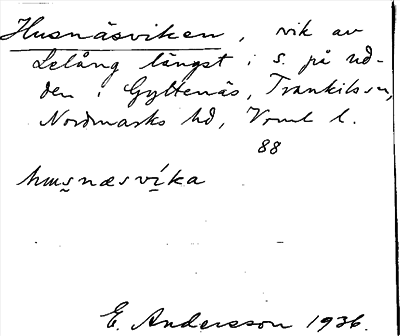 Husnäsviken, vik av
Lelång längst i s. på ud-
den i Gyltenäs, Trankils sn,
Nordmarks hd, Vrml l.
88
husnæsvíka
E. Andersson 1936.